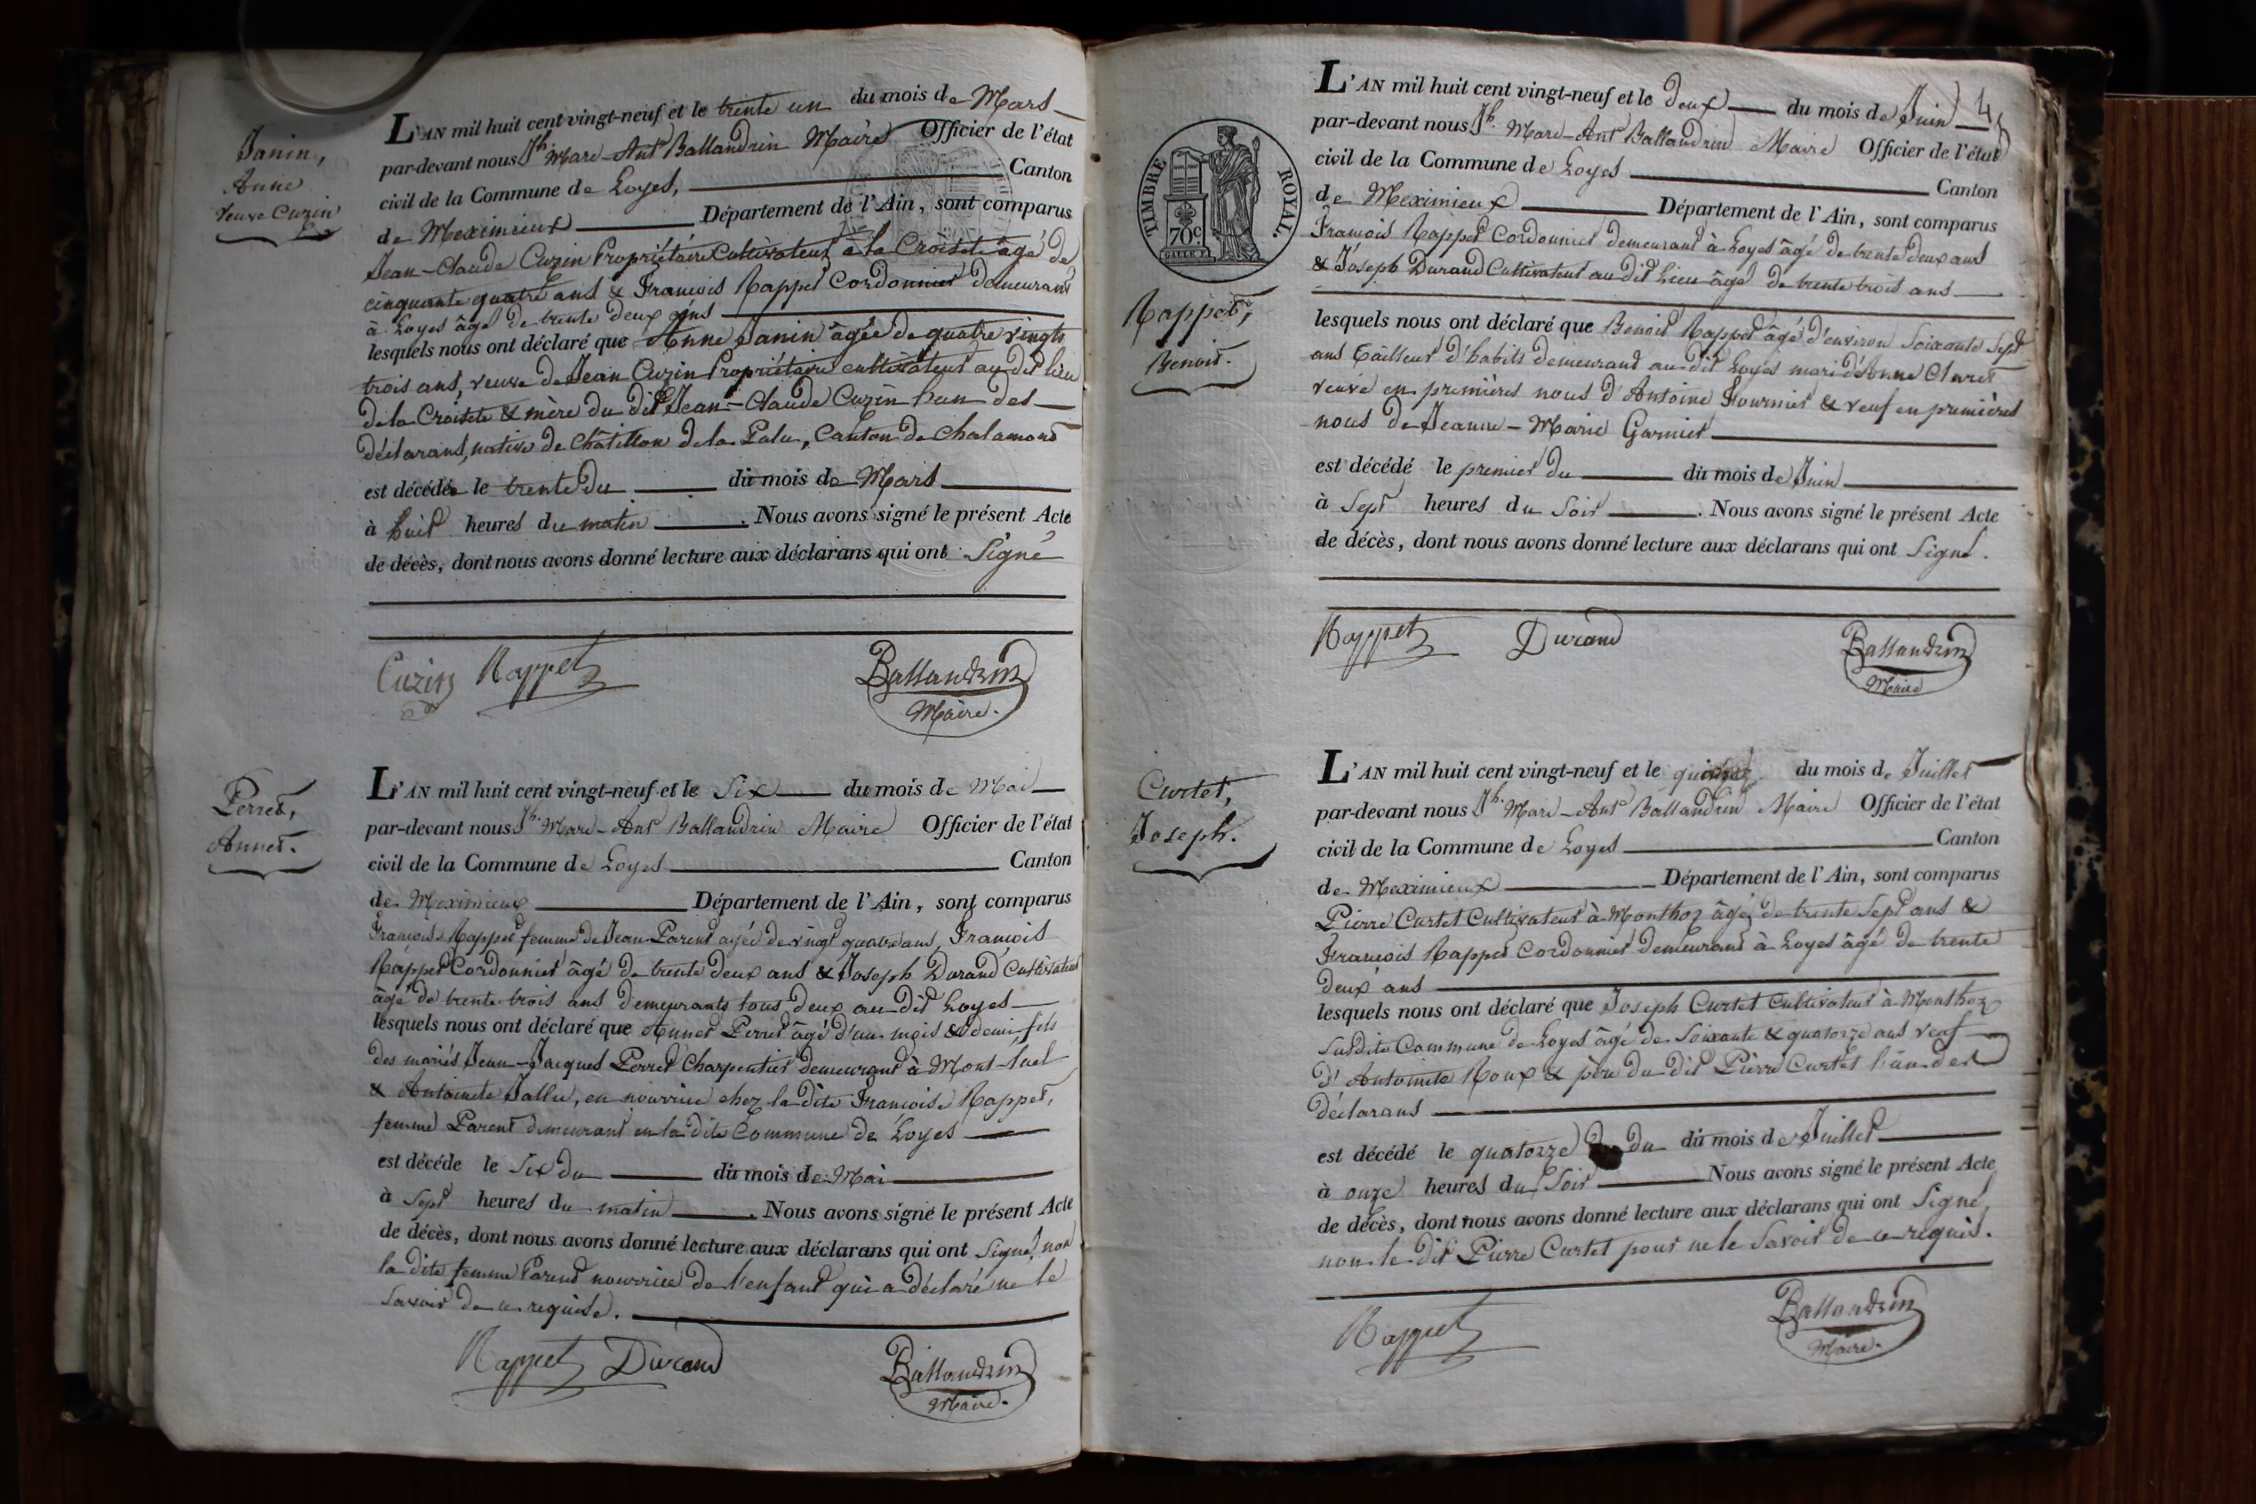 Janin,
Anne
veuve Cuzin
L'AN mil huit cent vingt-neuf et le trente un du mois de Mars
par-devant nous Jh. Marc-Ant Ballandrin Maire Officier de l'état
civil de la Commune de Loyes, Canton
de Meximieux Département de l'Ain, sont comparus
Jean-Claude Cuzin Propriétaire Cultivateur à la Croisete âgé de
cinquante quatre ans & François Rappet Cordonnier demeurant
à Loyes âgé de trente deux ans
lesquels nous ont déclaré que Anne Janin âgée de quatre vingts
trois ans, veuve de Jean Cuzin Propriétaire cultivateur au dit lieu
de la Croisete & mère du dit Jean-Claude Cuzin l'un des
déclarans, native de Châtillon de la Palu, Canton de Chalamont
est décédée le trente du du mois de Mars
à huit heures du matin. Nous avons signé le présent Acte
de décès, dont nous avons donné lecture aux déclarans qui ont Signé
Cuzin Rappet Ballandrin
Maire.
Perret,
Annet.
L'AN mil huit cent vingt-neuf et le Six du mois de Mai
par-devant nous Jh. Marc-Ant Ballandrin Maire Officier de l'état
civil de la Commune de Loyes Canton
de Meximieux Département de l'Ain, sont comparus
Françoise Rappet femme de Jean Parent agée de vingt quatre ans, François
Rappet Cordonnier âgé de trente deux ans & Joseph Durand Cultivateur
âgé de trente trois ans demeurants tous deux au dit Loyes
lesquels nous ont déclaré que Annet Perret âgé d'un mois & demi fils
des mariés Jean-Jacques Perret Charpentier demeurant à Mont-luel
& Antoinete Jallu, en nourrice chez la dite Françoise Rappet,
femme Parent demeurant en la dite Commune de Loyes
est décédé le Six du du mois de Mai
à Sept heures du matin. Nous avons signé le présent Acte
de décès, dont nous avons donné lecture aux déclarans qui ont Signé, non
la dite femme Parent nourrice de l'enfant qui a déclaré ne le
savoir de ce requise.
Rappet Durand Ballandrin
Maire.
4
TIMBRE ROYAL.
70c
L'AN mil huit cent vingt-neuf et le Deux du mois de Juin
par-devant nous Jh. Marc-Ant Ballandrin Maire Officier de l'état
civil de la Commune de Loyes Canton
de Meximieux Département de l'Ain, sont comparus
François Rappet Cordonnier demeurant à Loyes âgé de trente deux ans
& Joseph Durand Cultivateur au dit Lieu âgé de trente trois ans
Rappet,
Benoit.
lesquels nous ont déclaré que Benoit Rappet âgé d'environ Soixante Sept
ans Tailleur d'habits demeurant au dit Loyes mari d'Anne Claret
veuve en premières nous d'Antoine Fournier & veuf en premières
nous de Jeanne-Marie Garnier
est décédé le premier du du mois de Juin
à Sept heures du Soir. Nous avons signé le présent Acte
de décès, dont nous avons donné lecture aux déclarans qui ont Signé.
Rappet Durand Ballandrin
Maire
Curtet,
Joseph.
L'AN mil huit cent vingt-neuf et le quinze du mois de Juillet
par-devant nous Jh. Marc-Ant Ballandrin Maire Officier de l'état
civil de la Commune de Loyes Canton
de Meximieux Département de l'Ain, sont comparus
Pierre Curtet Cultivateur à Monthoz âgé de trente Sept ans &
François Rappet Cordonnier demeurant à Loyes âgé de trente
deux ans
lesquels nous ont déclaré que Joseph Curtet Cultivateur à Monthoz
Susdite Commune de Loyes âgé de Soixante & quatorze ans veuf
d'Antoinete Roux & père du dit Pierre Curtet l'un des
déclarans
est décédé le quatorze du du mois de Juillet
à onze heures du Soir Nous avons signé le présent Acte
de décès, dont nous avons donné lecture aux déclarans qui ont Signé,
non le dit Pierre Curtet pour ne le Savoir de ce requis.
Rappet Ballandrin
Maire.